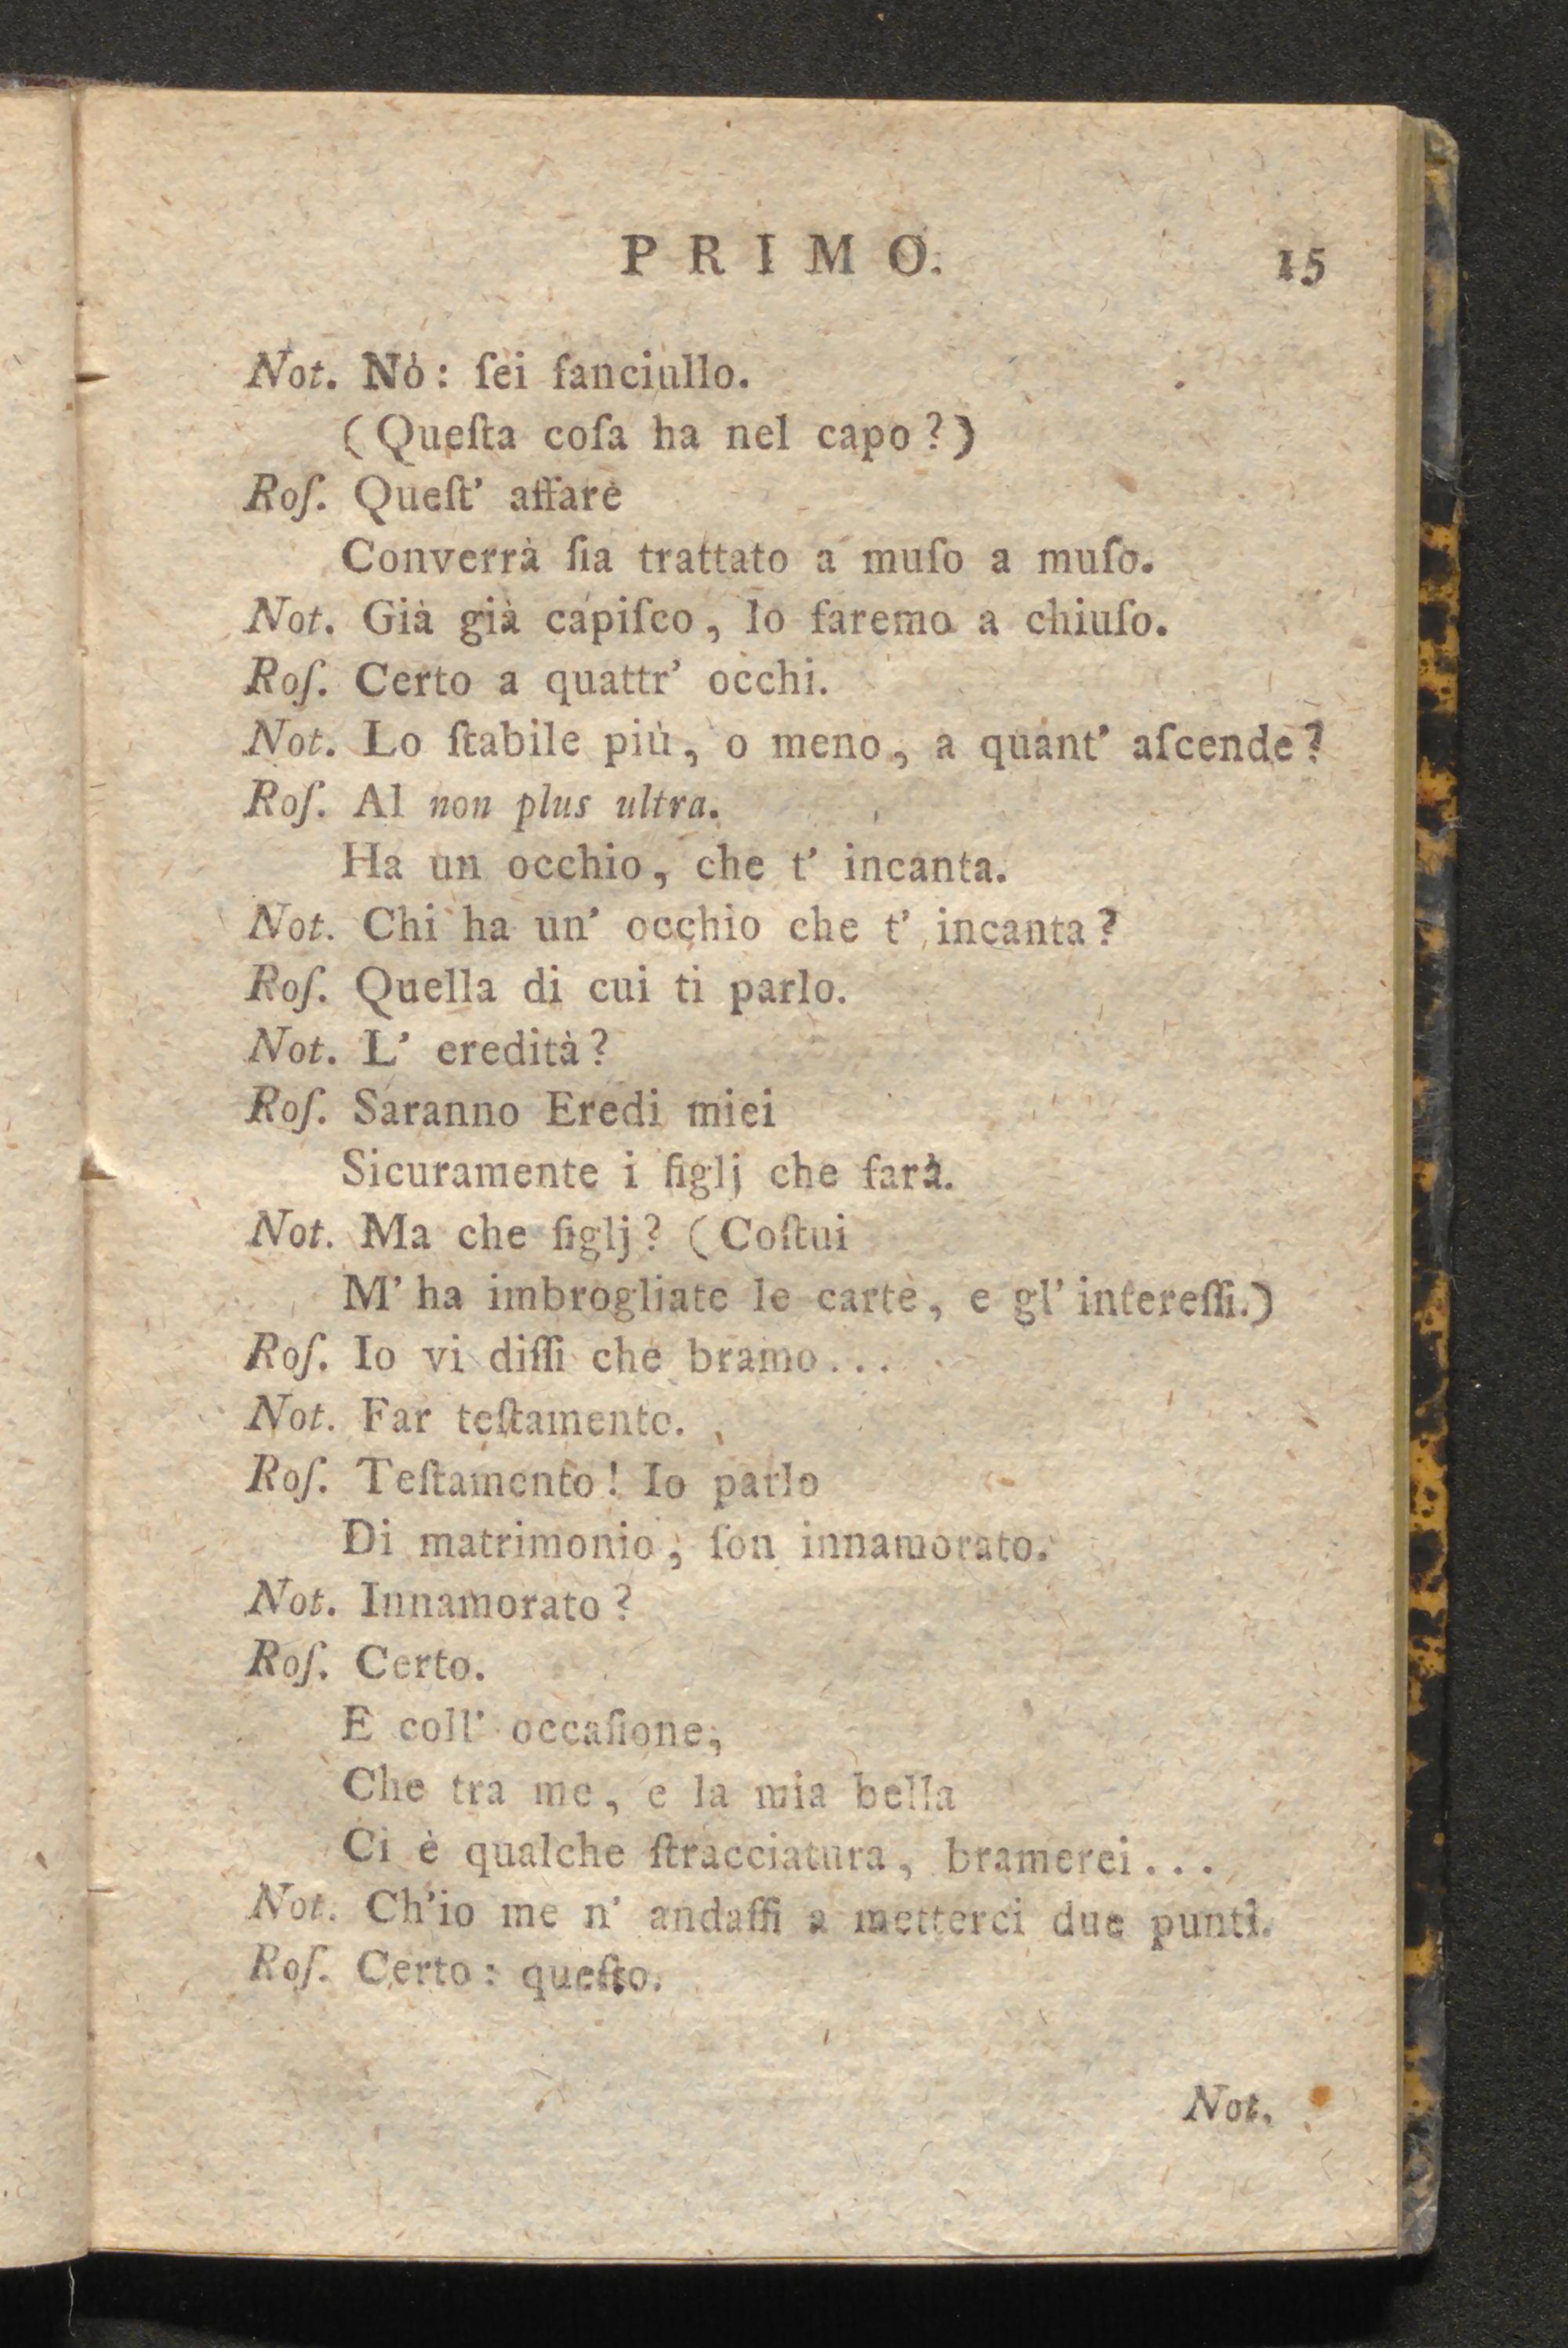 PRIMO. 15
Not. Nò: ſei fanciullo.
(Queſta coſa ha nel capo?)
Roſ. Queſt' affare
Converrà ſia trattato a muſo a muſo.
Not. Già già capiſco, lo faremo a chiuſo.
Roſ. Certo a quattr' occhi.
Not. Lo ſtabile più, o meno, a quant' aſcende?
Roſ. Al non plus ultra.
Ha un occhio, che t' incanta.
Not. Chi ha un' occhio che t' incanta?
Roſ. Quella di cui ti parlo.
Not. L' eredità?
Roſ. Saranno Eredi miei
Sicuramente i figlj che farà.
Not. Ma che figlj? (Coſtui
M' ha imbrogliate le carte, e gl' intereſſi.)
Roſ. Io vi diſſi che bramo...
Not. Far teſtamento.
Roſ. Teſtamento! Io parlo
Di matrimonio, ſon innamorato.
Not. Innamorato?
Roſ. Certo.
E coll' occaſione,
Che tra me, e la mia bella
Ci è qualche ſtracciatura, bramerei...
Not. Ch'io me n' andaſſi a metterci due punti.
Roſ. Certo: queſto.
Not.